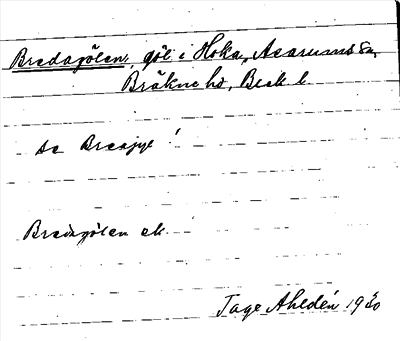 Bredagölen, göl i Hoka, Asarums sn,
Bräkne hd, Blek l.
sa Breajyl
Bredagölen ek
Tage Ahldén 1930